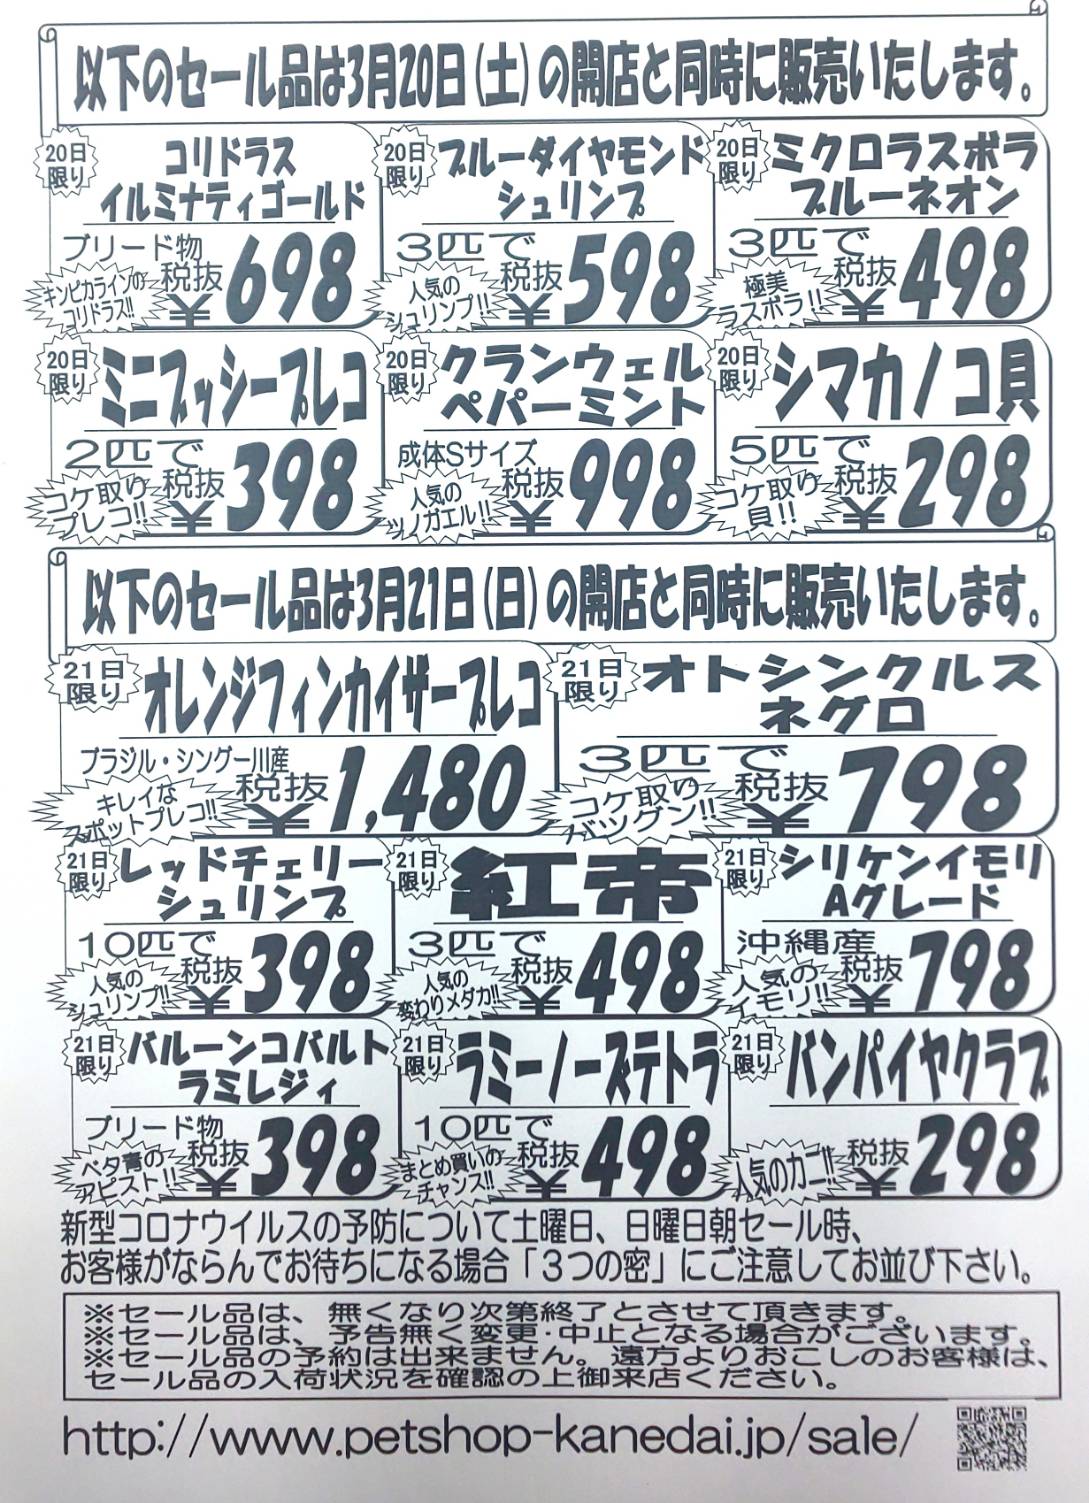 以下のセール品は3月20日(土)の開店と同時に販売いたします。
20日
限り
コリドラス
イルミナティゴールド
ブリード物
キンピカラインの
コリドラス!!
税抜
¥
698
20日
限り
ブルーダイヤモンド
シュリンプ
3匹で
人気の
シュリンプ!!
税抜
¥
598
20日
限り
ミクロラスボラ
ブルーネオン
3匹で
極美
ラスボラ!!
税抜
¥
498
20日
限り
ミニブッシープレコ
2匹で
コケ取り
プレコ!!
税抜
¥
398
20日
限り
クランウェル
ペパーミント
成体Sサイズ
人気の
ツノガエル!!
税抜
¥
998
20日
限り
シマカノコ貝
5匹で
コケ取り
貝!!
税抜
¥
298
以下のセール品は3月21日(日)の開店と同時に販売いたします。
21日
限り
オレンジフィンカイザープレコ
ブラジル・シングー川産
キレイな
スポットプレコ!!
税抜
¥
1,480
21日
限り
オトシンクルス
ネグロ
3匹で
コケ取り
バツグン!!
税抜
¥
798
21日
限り
レッドチェリー
シュリンプ
10匹で
人気の
シュリンプ!!
税抜
¥
398
21日
限り
紅帝
3匹で
人気の
変わりメダカ!!
税抜
¥
498
21日
限り
シリケンイモリ
Aグレード
沖縄産
人気の
イモリ!!
税抜
¥
798
21日
限り
バルーンコバルト
ラミレジィ
ブリード物
ベタ青の
アピスト!!
税抜
¥
398
21日
限り
ラミーノーズテトラ
10匹で
まとめ買いの
チャンス!!
税抜
¥
498
21日
限り
バンパイヤクラブ
人気のカニ!!
税抜
¥
298
新型コロナウイルスの予防について土曜日、日曜日朝セール時、
お客様がならんでお待ちになる場合「3つの密」にご注意してお並び下さい。
※セール品は、無くなり次第終了とさせて頂きます。
※セール品は、予告無く変更・中止となる場合がございます。
※セール品の予約は出来ません。遠方よりおこしのお客様は、
セール品の入荷状況を確認の上御来店ください。
http://www.petshop-kanedai.jp/sale/